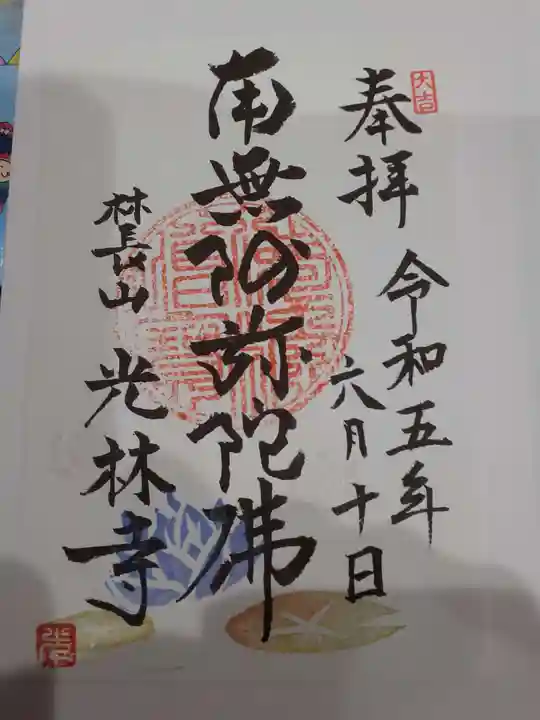 大吉
奉拝
令和五年
六月十日
南無阿弥陀佛
光林寺